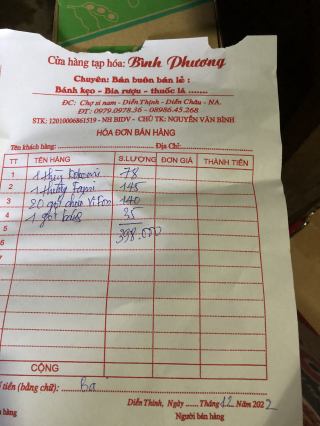 Cửa hàng tạp hóa: Bình Phương
Chuyên: Bán buôn bán lẻ :
Bánh kẹo - Bia rượu - thuốc lá .......
ĐC: Chợ sỉ nam - Diễn Thịnh - Diễn Châu - NA.
ĐT: 0979.0978.36 - 08986.45.268
STK: 12010006861519 - NH BIDV - CHỦ TK: NGUYỄN VĂN BÌNH
HÓA ĐƠN BÁN HÀNG
Tên khách hàng: Địa Chỉ:
TT TÊN HÀNG S.LƯỢNG ĐƠN GIÁ THÀNH TIỀN
1 1 thùng Kokomi 78
2 1 thùng 145
3 20 gói cháo Vifon 140
4 1 gói 35
5 398.000
6
CỘNG
tiền (bằng chữ): Ba
Diễn Thịnh, Ngày ...... Tháng 12 Năm 2022
hàng Người bán hàng